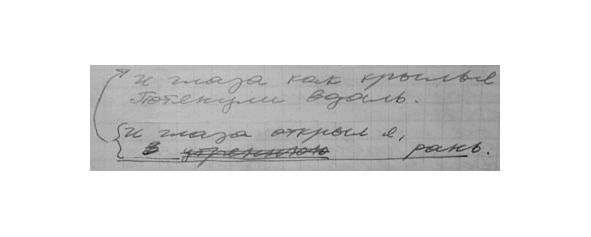 и глаза как крылья
Потянули вдаль.
и глаза открыл я,
в утреннюю рань.